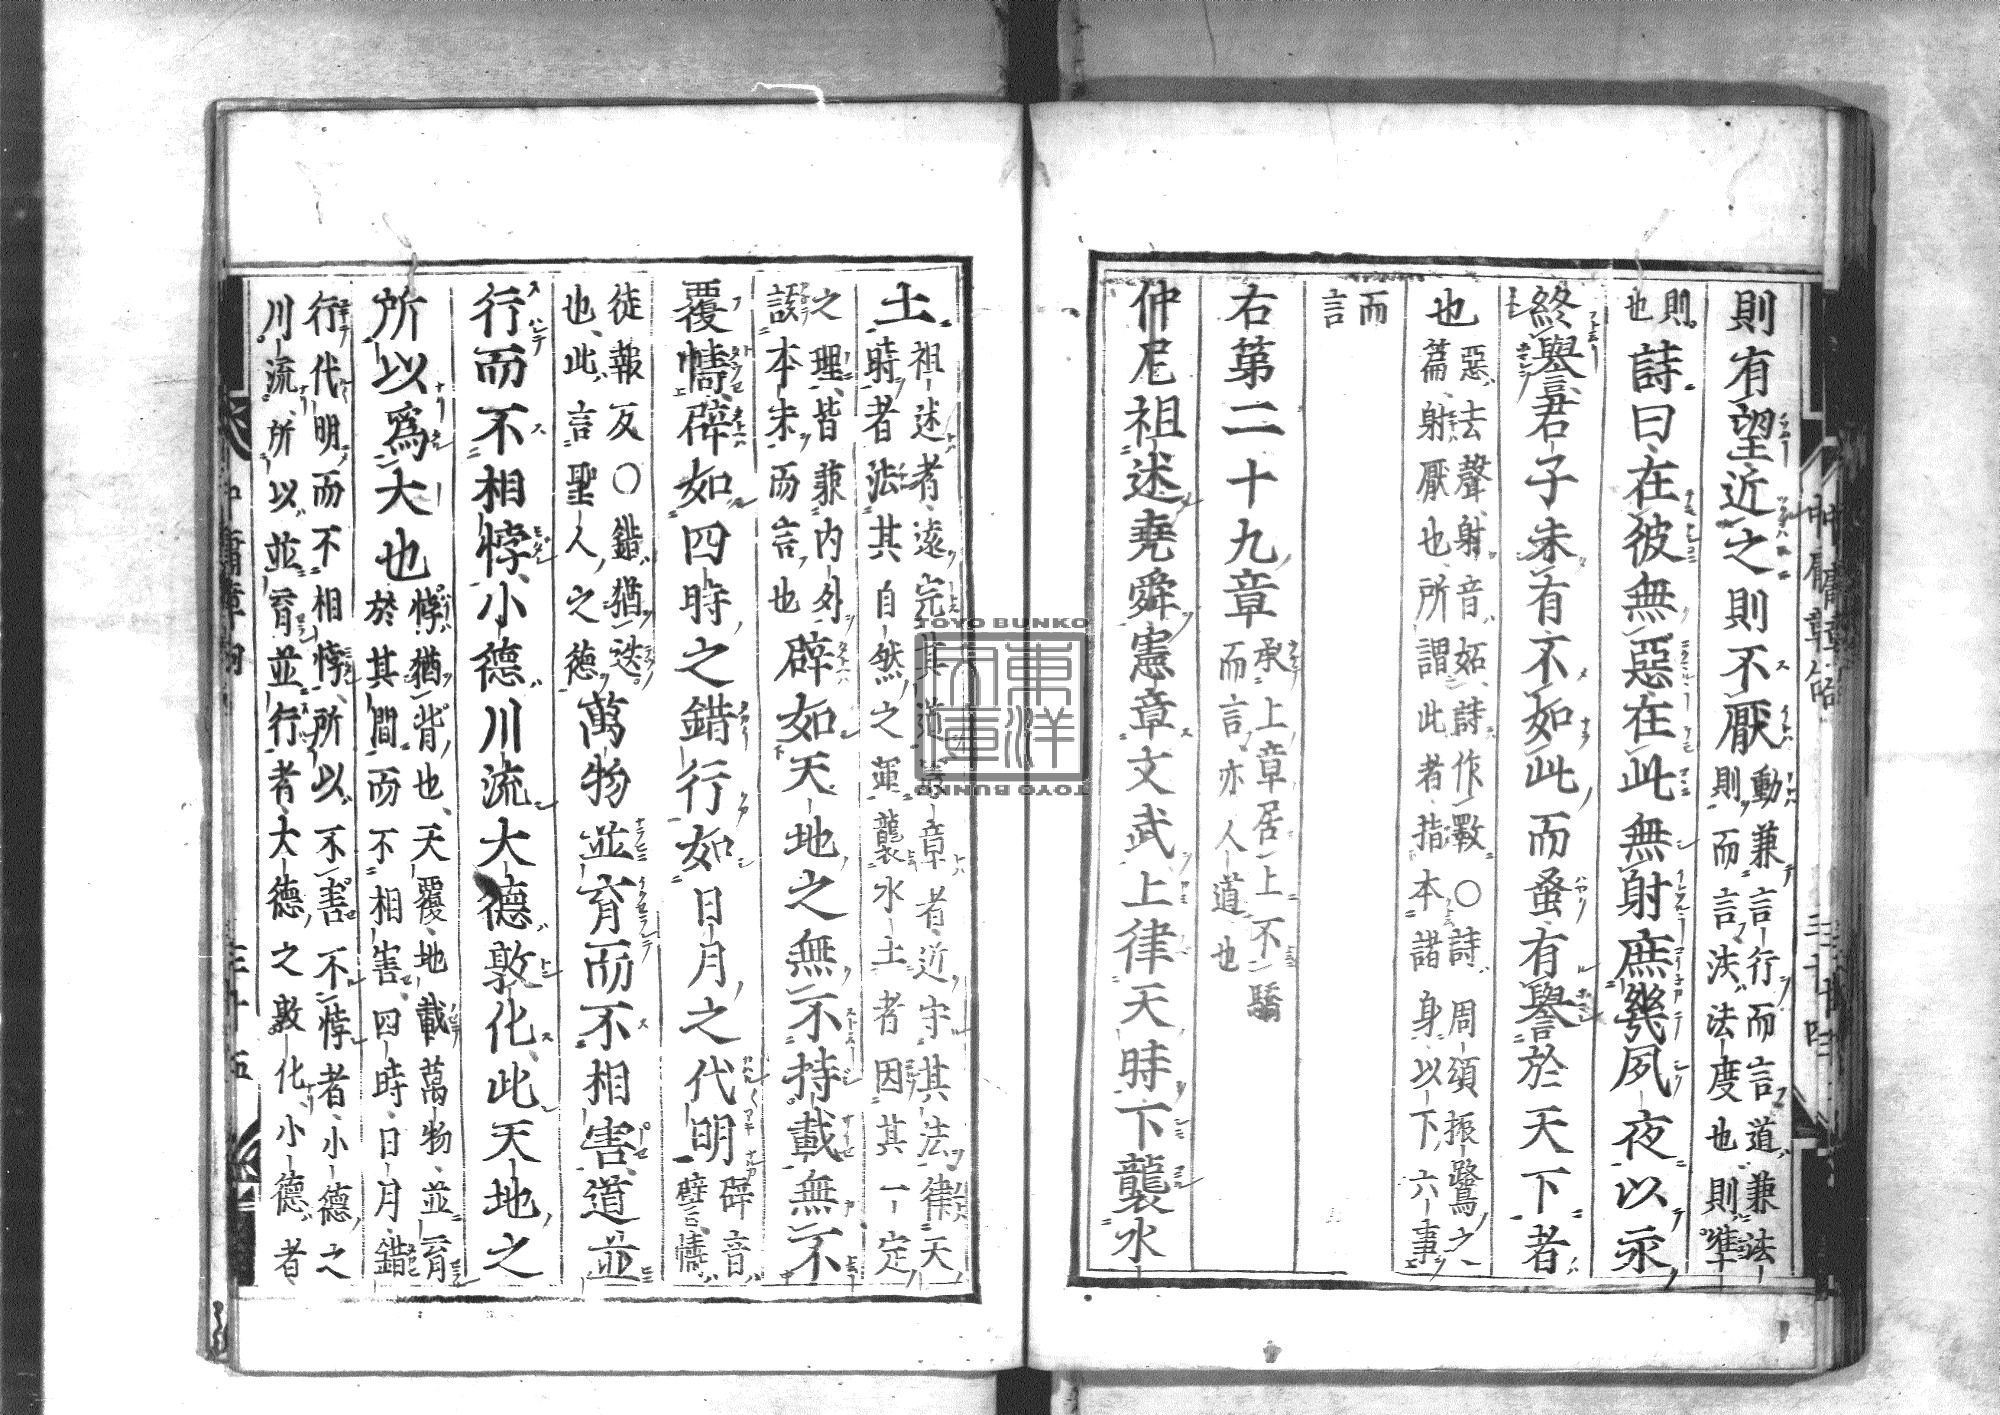 則有望近之則不厭動兼言行而言道兼法
則而言法法度也則準
則也詩曰在彼無惡在此無射庶幾夙夜以永
終譽君子未有不如此而蚤有譽於天下者
也惡去聲射音妬詩作斁○詩周頌振鷺之
篇射厭也所謂此者指本諸身以下六事
而
言
右第二十九章承上章居上不驕
而言亦人道也
仲尼祖述堯舜憲章文武上律天時下襲水
土祖述者遠宗其道憲章者近守其法律天
時者法其自然之運襲水土者因其一定
之理皆兼内外
該本末而言也辟如天地之無不持載無不
覆幬辟如四時之錯行如日月之代明辟音
譬幬
徒報反○錯猶迭
也此言聖人之德萬物並育而不相害道並
行而不相悖小德川流大德敦化此天地之
所以爲大也悖猶背也天覆地載萬物並育
於其間而不相害四時日月錯
行代明而不相悖所以不害不悖者小德之
川流所以並育並行者大德之敦化小德者
中庸章句
三十四
中庸章句
三十五
TOYO BUNKO
東洋文庫
TOYO BUNKO